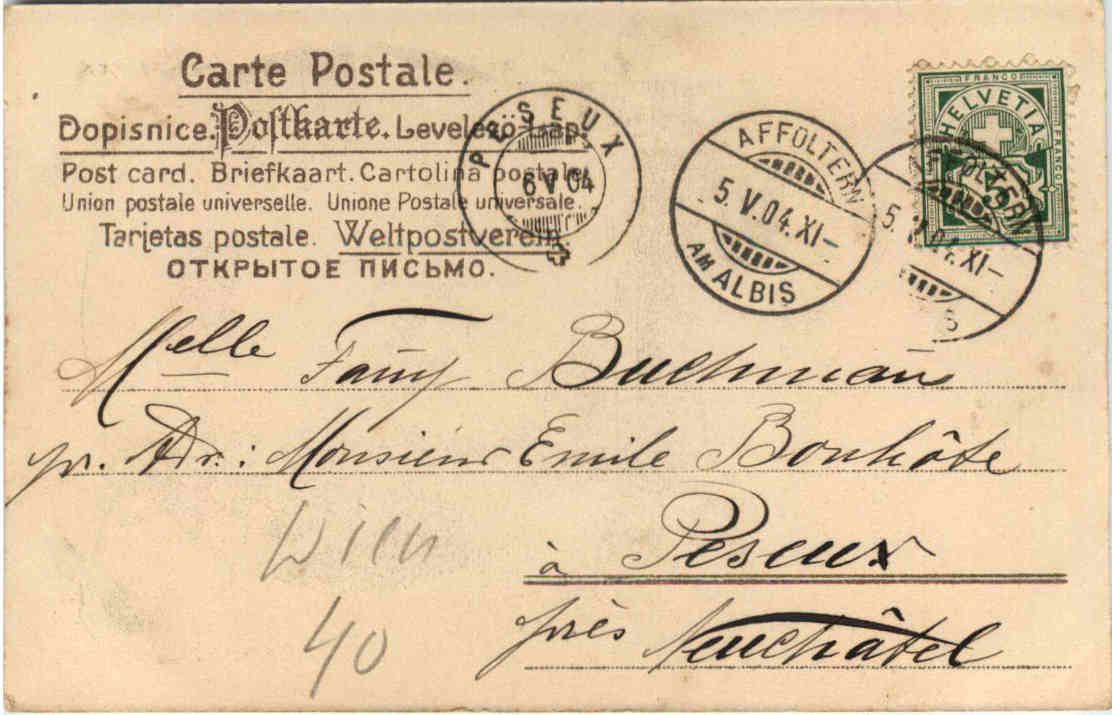 Carte Postale.
Dopisnice. Postkarte. Levelező-Lap.
Post card. Briefkaart. Cartolina postale.
Union postale universelle. Unione Postale universale.
Tarjetas postale. Weltpostverein.
ОТКРЫТОЕ ПИСЬМО.
PESEUX
6 V 04
AFFOLTERN
5.V.04.XI–
AM ALBIS
FRANCO
HELVETIA
FRANCO
5
AFFOLTERN
5.V.04.XI–
S
Melle Fanny Buchmann
pr. Adr.: Monsieur Emile Bonhôte
à Peseux
près Neuchâtel
Wien
40